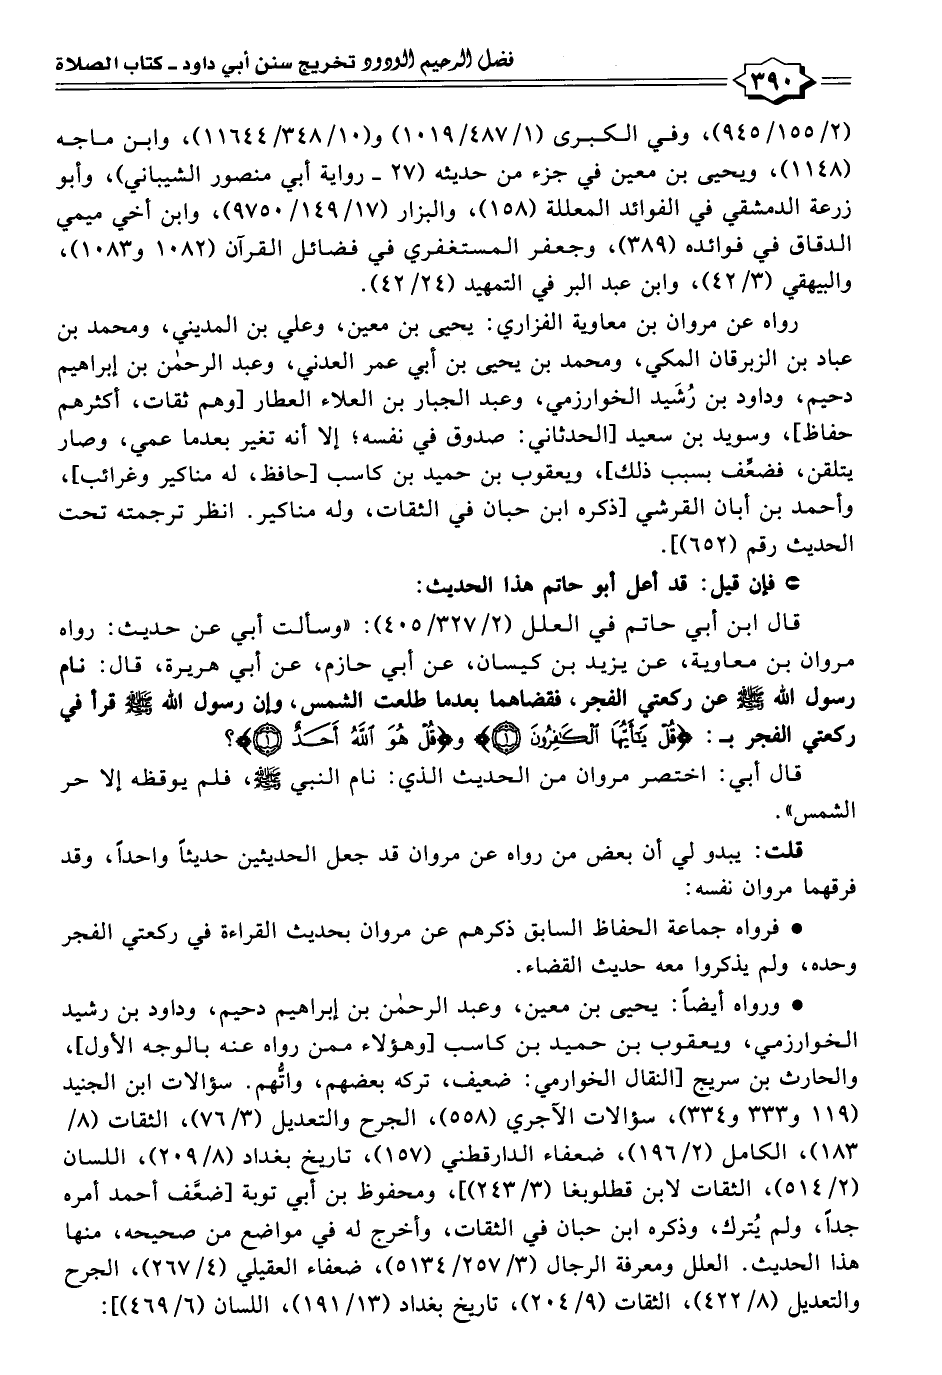 فضل الرحيم الودود تخريج سنن أبي داود ـ كتاب الصلاة
٣٩٠
(٢/ ١٥٥/ ٩٤٥)، وفي الكبرى (١/ ٤٨٧/ ١٠١٩) و(١٠/ ٣٤٨/ ١١٦٤٤)، وابن ماجه
(١١٤٨)، ويحيى بن معين في جزء من حديثه (٢٧ ـ رواية أبي منصور الشيباني)، وأبو
زرعة الدمشقي في الفوائد المعللة (١٥٨)، والبزار (١٧/ ١٤٩/ ٩٧٥٠)، وابن أخي ميمي
الدقاق في فوائده (٣٨٩)، وجعفر المستغفري في فضائل القرآن (١٠٨٢ و١٠٨٣)،
والبيهقي (٣/ ٤٢)، وابن عبد البر في التمهيد (٢٤/ ٤٢).
رواه عن مروان بن معاوية الفزاري: يحيى بن معين، وعلي بن المديني، ومحمد بن
عباد بن الزبرقان المكي، ومحمد بن يحيى بن أبي عمر العدني، وعبد الرحمٰن بن إبراهيم
دحيم، وداود بن رُشَيد الخوارزمي، وعبد الجبار بن العلاء العطار [وهم ثقات، أكثرهم
حفاظ]، وسويد بن سعيد [الحدثاني: صدوق في نفسه؛ إلا أنه تغير بعدما عمي، وصار
يتلقن، فضعِّف بسبب ذلك]، ويعقوب بن حميد بن كاسب [حافظ، له مناكير وغرائب]،
وأحمد بن أبان القرشي [ذكره ابن حبان في الثقات، وله مناكير. انظر ترجمته تحت
الحديث رقم (٦٥٢)].
⊃ فإن قيل: قد أعل أبو حاتم هذا الحديث:
قال ابن أبي حاتم في العلل (٢/ ٣٢٧/ ٤٠٥): «وسألت أبي عن حديث: رواه
مروان بن معاوية، عن يزيد بن كيسان، عن أبي حازم، عن أبي هريرة، قال: نام
رسول الله ﷺ عن ركعتي الفجر، فقضاهما بعدما طلعت الشمس، وإن رسول الله ﷺ قرأ في
ركعتي الفجر بـ: ﴿قُلْ يَٰٓأَيُّهَا ٱلْكَٰفِرُونَ ۝١﴾ و﴿قُلْ هُوَ ٱللَّهُ أَحَدٌ ۝١﴾؟
قال أبي: اختصر مروان من الحديث الذي: نام النبي ﷺ، فلم يوقظه إلا حر
الشمس».
قلت: يبدو لي أن بعض من رواه عن مروان قد جعل الحديثين حديثاً واحداً، وقد
فرقهما مروان نفسه:
• فرواه جماعة الحفاظ السابق ذكرهم عن مروان بحديث القراءة في ركعتي الفجر
وحده، ولم يذكروا معه حديث القضاء.
• ورواه أيضاً: يحيى بن معين، وعبد الرحمٰن بن إبراهيم دحيم، وداود بن رشيد
الخوارزمي، ويعقوب بن حميد بن كاسب [وهؤلاء ممن رواه عنه بالوجه الأول]،
والحارث بن سريج [النقال الخوارمي: ضعيف، تركه بعضهم، واتُّهم. سؤالات ابن الجنيد
(١١٩ و٣٣٣ و٣٣٤)، سؤالات الآجري (٥٥٨)، الجرح والتعديل (٣/ ٧٦)، الثقات (٨/
١٨٣)، الكامل (٢/ ١٩٦)، ضعفاء الدارقطني (١٥٧)، تاريخ بغداد (٨/ ٢٠٩)، اللسان
(٢/ ٥١٤)، الثقات لابن قطلوبغا (٣/ ٢٤٣)]، ومحفوظ بن أبي توبة [ضعَّف أحمد أمره
جداً، ولم يُترك، وذكره ابن حبان في الثقات، وأخرج له في مواضع من صحيحه، منها
هذا الحديث. العلل ومعرفة الرجال (٣/ ٢٥٧/ ٥١٣٤)، ضعفاء العقيلي (٤/ ٢٦٧)، الجرح
والتعديل (٨/ ٤٢٢)، الثقات (٩/ ٢٠٤)، تاريخ بغداد (١٣/ ١٩١)، اللسان (٦/ ٤٦٩)]: